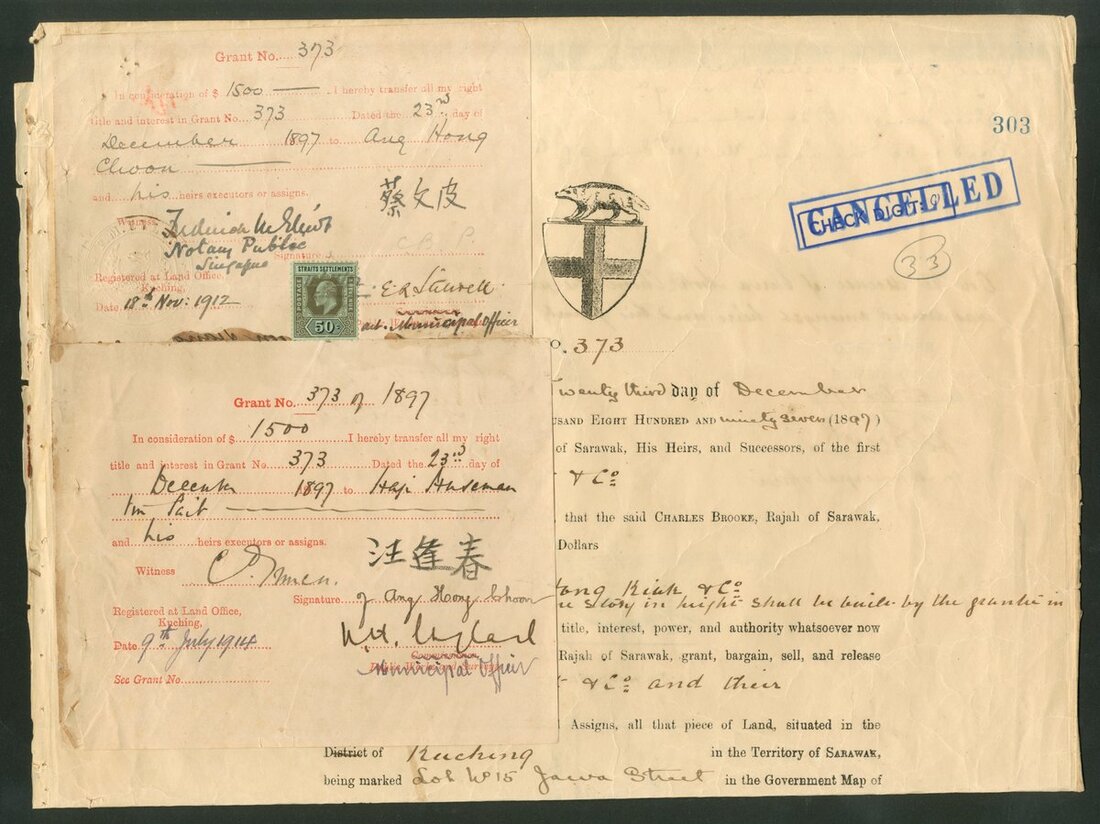 Grant No. 373
In consideration of $ 1500 — I hereby transfer all my right
title and interest in Grant No. 373 Dated the 23rd day of
December 1897 to Ang Hong
Choon
and his heirs executors or assigns.
蔡文皮
Witness
Notary Public
Singapore
Signature
Registered at Land Office,
Kuching,
Date 18th Nov: 1912
STRAITS SETTLEMENTS
POSTAGE & REVENUE
50c
act. Municipal Officer
Grant No. 373 of 1897
In consideration of $ 1500 I hereby transfer all my right
title and interest in Grant No. 373 Dated the 23rd day of
1897 to Haji
and his heirs executors or assigns.
汪逢春
Witness
Signature of Ang Hong Choon
Registered at Land Office,
Kuching,
Date 9th July 1914
Municipal Officer
See Grant No.
303
CANCELLED
CHECK DIGIT: 9
33
o. 373
Twenty third day of December
USAND EIGHT HUNDRED AND ninety seven (1897)
of Sarawak, His Heirs, and Successors, of the first
& Co
that the said CHARLES BROOKE, Rajah of Sarawak,
Dollars
& Co
story in height shall be built by the grantee in
title, interest, power, and authority whatsoever now
Rajah of Sarawak, grant, bargain, sell, and release
& Co and their
Assigns, all that piece of Land, situated in the
District of Kuching in the Territory of SARAWAK,
being marked Lot No 15 Jawa Street in the Government Map of